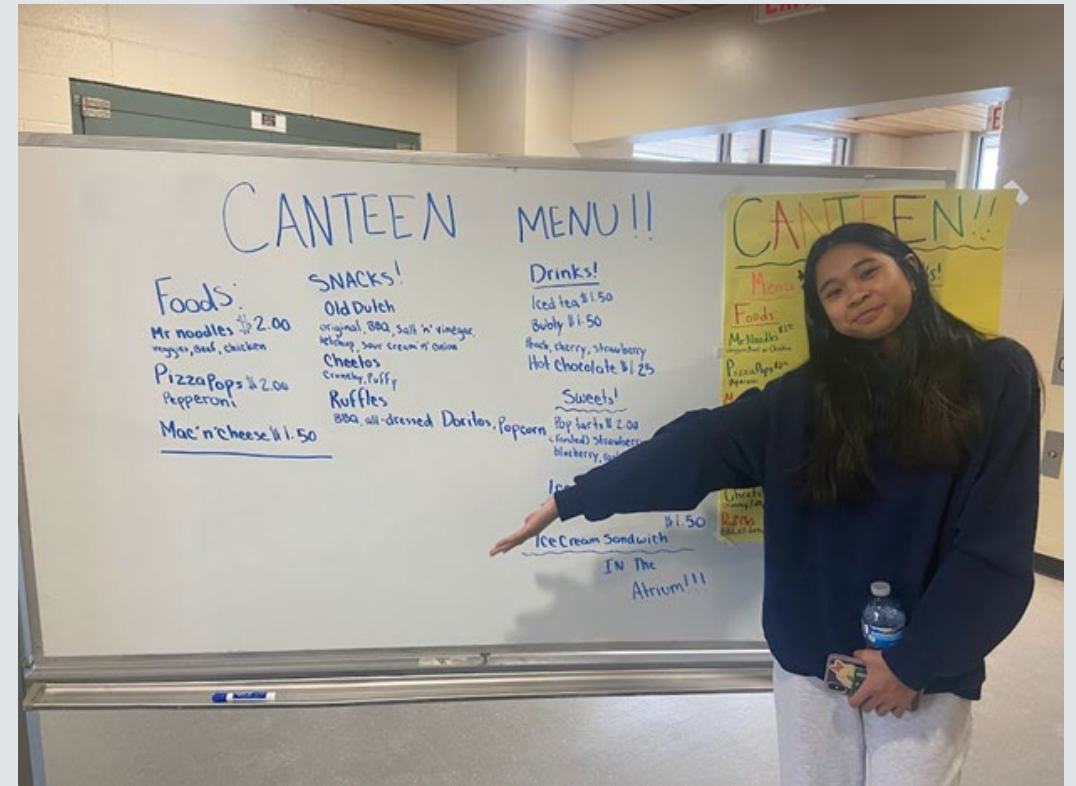 CANTEEN MENU!!
Foods:
Mr noodles $2.00
veggies, Beef, chicken
PizzaPops $2.00
Pepperoni
Mac'n'Cheese $1.50
SNACKS!
Old Dutch
original, BBQ, Salt 'n' vinegar,
ketchup, sour cream 'n' onion
Cheetos
Crunchy, Puffy
Ruffles
BBQ, all-dressed Doritos, Popcorn
Drinks!
Iced tea $1.50
Bubly $1.50
Peach, cherry, strawberry
Hot Chocolate $1.25
Sweets!
Pop tarts $2.00
(frosted) strawberry
blueberry,
Ice
$1.50
Ice Cream Sandwich
IN The
Atrium!!!
CANTEEN!!
Menu
Foods
Mr Noodles
PizzaPops
Pepperoni
Cheetos
Ruffles